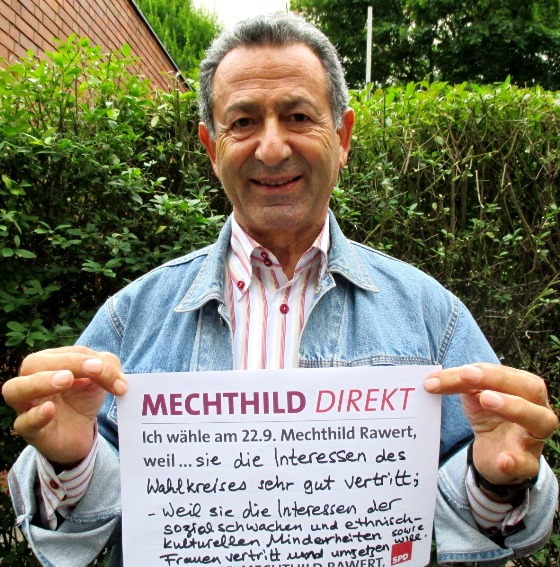 MECHTHILD DIREKT
Ich wähle am 22.9. Mechthild Rawert,
weil... sie die Interessen des
Wahlkreises sehr gut vertritt;
- Weil sie die Interessen der
sozialschwachen und ethnisch-
kulturellen Minderheiten sowie
Frauen vertritt und umsetzen will.
SPD
MECHTHILD RAWERT.